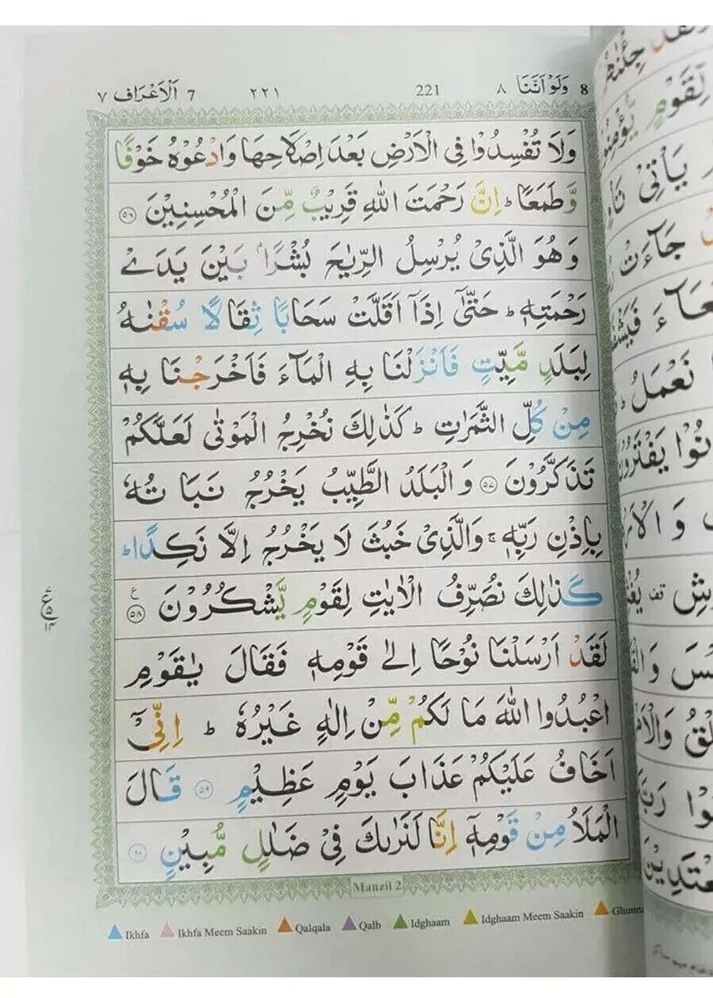 8 وَلَوْ اَنَّنَا ٨ 221 ٢٢١ 7 اَلْاَعْرَاف ٧
وَلَا تُفْسِدُوْا فِى الْاَرْضِ بَعْدَ اِصْلَاحِهَا وَادْعُوْهُ خَوْفًا
وَّطَمَعًا ؕ اِنَّ رَحْمَتَ اللّٰهِ قَرِيْبٌ مِّنَ الْمُحْسِنِيْنَ ٥٦
وَهُوَ الَّذِىْ يُرْسِلُ الرِّيٰحَ بُشْرًاۢ بَيْنَ يَدَىْ
رَحْمَتِهٖ ؕ حَتّٰۤى اِذَاۤ اَقَلَّتْ سَحَابًا ثِقَالًا سُقْنٰهُ
لِبَلَدٍ مَّيِّتٍ فَاَنْزَلْنَا بِهِ الْمَآءَ فَاَخْرَجْنَا بِهٖ
مِنْ كُلِّ الثَّمَرٰتِ ؕ كَذٰلِكَ نُخْرِجُ الْمَوْتٰى لَعَلَّكُمْ
تَذَكَّرُوْنَ ٥٧ وَالْبَلَدُ الطَّيِّبُ يَخْرُجُ نَبَاتُهٗ
بِاِذْنِ رَبِّهٖ ۚ وَالَّذِىْ خَبُثَ لَا يَخْرُجُ اِلَّا نَكِدًا ؕ
كَذٰلِكَ نُصَرِّفُ الْاٰيٰتِ لِقَوْمٍ يَّشْكُرُوْنَ ٥٨ ع
لَقَدْ اَرْسَلْنَا نُوْحًا اِلٰى قَوْمِهٖ فَقَالَ يٰقَوْمِ
اعْبُدُوا اللّٰهَ مَا لَكُمْ مِّنْ اِلٰهٍ غَيْرُهٗ ؕ اِنِّىْۤ
اَخَافُ عَلَيْكُمْ عَذَابَ يَوْمٍ عَظِيْمٍ ٥٩ قَالَ
الْمَلَاُ مِنْ قَوْمِهٖۤ اِنَّا لَنَرٰىكَ فِىْ ضَلٰلٍ مُّبِيْنٍ ٦٠
Manzil 2
Ikhfa Ikhfa Meem Saakin Qalqala Qalb Idghaam Idghaam Meem Saakin Ghunna